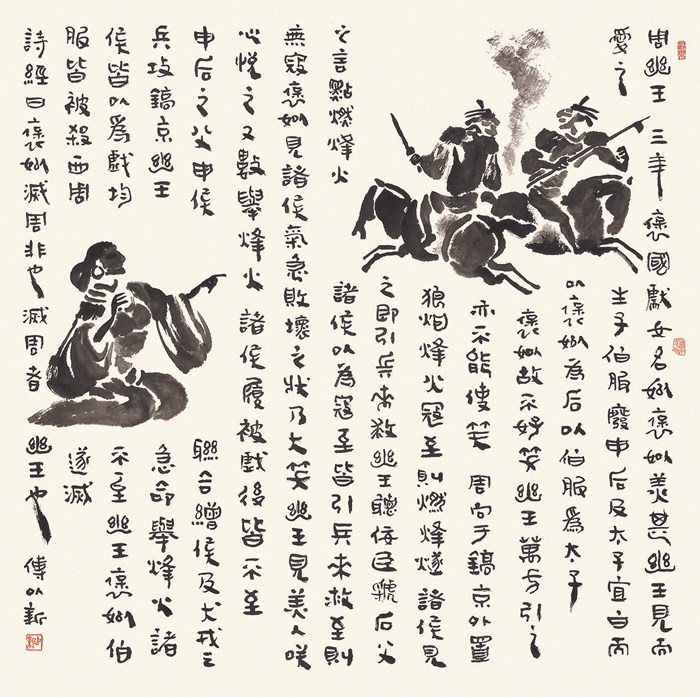 周幽王三年褒國獻女名姒褒姒美甚幽王見而
愛之生子伯服廢申后及太子宜臼而
以褒姒為后以伯服為太子
褒姒故不好笑幽王萬方引之
亦不能使笑周向于鎬京外置
狼烟烽火寇至則燃烽燧諸侯見
之即引兵來救幽王聽信臣虢石父
之言點燃烽火諸侯以為寇至皆引兵來救至則
無寇褒姒見諸侯氣急敗壞之狀乃大笑幽王見美人咲
心悅之又數舉烽火諸侯屢被戲後皆不至
申后之父申侯聯合繒侯及犬戎之
兵攻鎬京幽王急命舉烽火諸
侯皆以為戲均不至幽王褒姒伯
服皆被殺西周遂滅
詩經曰褒姒滅周非也滅周者幽王也傅以新